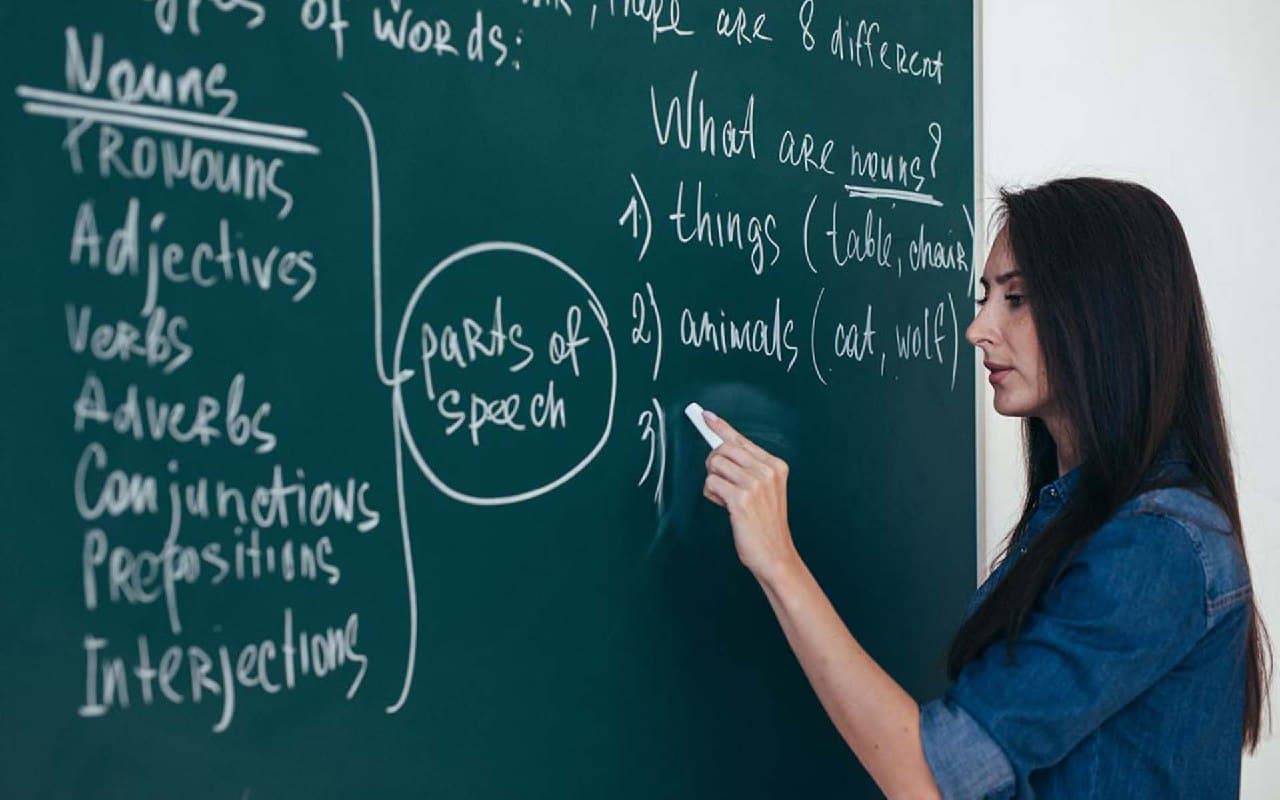 there are 8 different
types of words:
Nouns
Pronouns
Adjectives
Verbs
Adverbs
Conjunctions
Prepositions
Interjections
parts of
speech
What are nouns?
1) things (table, chair)
2) animals (cat, wolf)
3)